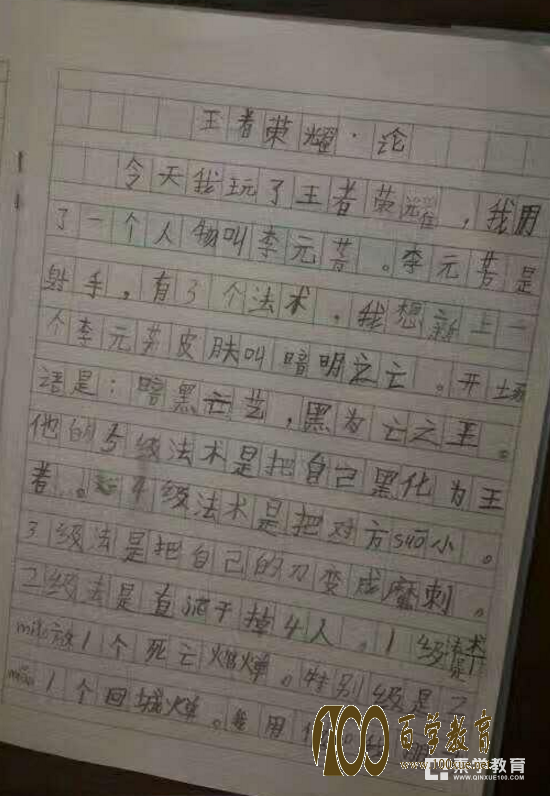 王者荣耀·论
今天我玩了王者荣耀，我用
了一个人物叫李元芳。李元芳是
射手，有3个法术，我想新上一
个李元芳皮肤叫暗明之亡。开场
语是：暗黑亡艺，黑为亡之王。
他的5级法术是把自己黑化为王
者。4级法术是把对方suō小。
3级法是把自己的刀变成魔刺。
2级法是直流干掉4人。1级法术
miǎo放1个死亡火暴弹。特别级是2
miǎo1个回城弹。用
100 百学教育
www.100xue.net
亲学教育
www.QINXUE100.COM